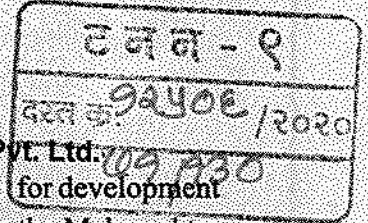 ट न न - ९
दस्त क्र. १२५०६ / २०२०
Pvt. Ltd. ७१ / १३०
for development